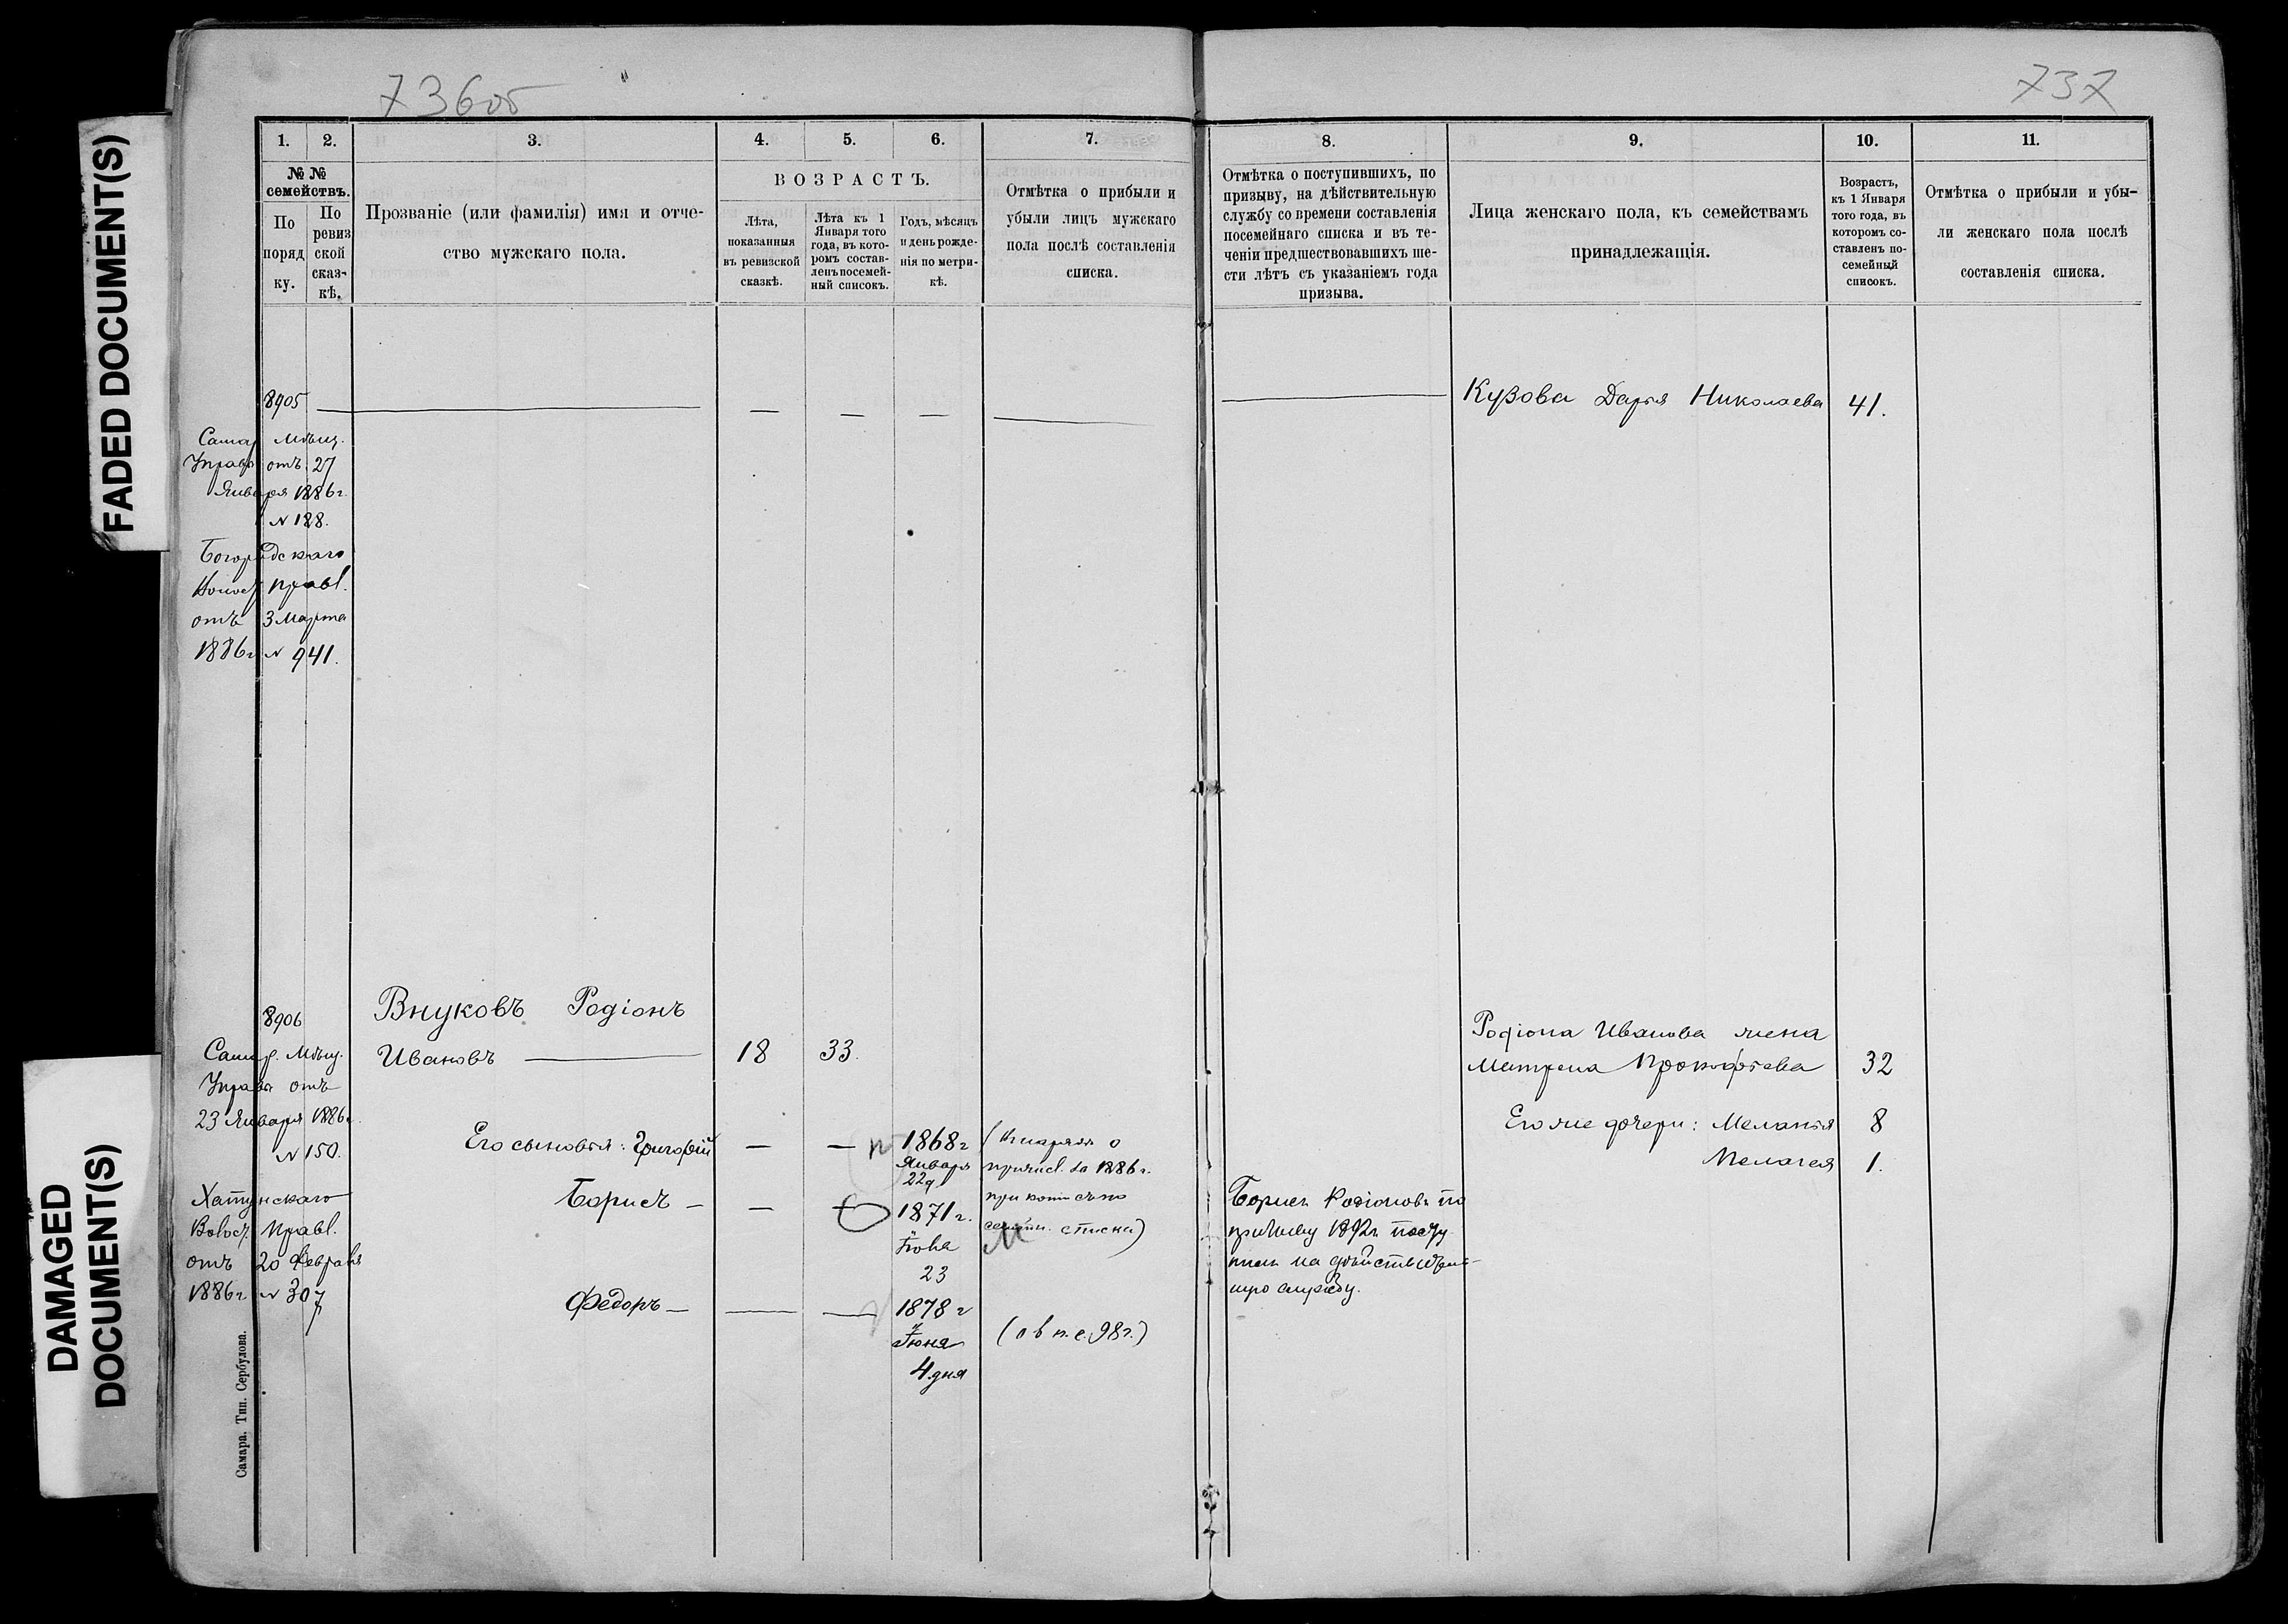 FADED DOCUMENT(S)
DAMAGED
DOCUMENT(S)
736об
737
1. 2. 3. 4. 5. 6. 7.
№ № семействъ.
По порядку.
По ревизской сказкѣ.
Прозваніе (или фамилія) имя и отчество мужскаго пола.
ВОЗРАСТЪ.
Лѣта,
показанныя
въ ревизской
сказкѣ.
Лѣта къ 1
Января того
года, въ кото-
ромъ состав-
ленъ посемей-
ный списокъ.
Годъ, мѣсяцъ
и день рожде-
нія по метри-
кѣ.
Отмѣтка о прибыли и
убыли лицъ мужскаго
пола послѣ составленія
списка.
8. 9. 10. 11.
Отмѣтка о поступившихъ, по
призыву, на дѣйствительную
службу со времени составленія
посемейнаго списка и въ те-
ченіи предшествовавшихъ ше-
сти лѣтъ съ указаніемъ года
призыва.
Лица женскаго пола, къ семействамъ
принадлежащія.
Возрастъ,
къ 1 Января
того года, въ
которомъ со-
ставленъ по-
семейный
списокъ.
Отмѣтка о прибыли и убы-
ли женскаго пола послѣ
составленія списка.
8905
Кузова Дарья Николаева 41.
Самар Мѣщ.
Управы отъ 27
Января 1886г.
№ 188.
Богородскаго
Волост Правл.
отъ 3 Марта
1886г № 941.
8906
Внуковъ Родіонъ
Ивановъ 18 33.
Самар. Мѣщ.
Управы отъ
23 Января 1886г
№ 150.
Хатунскаго
Волост. Правл.
отъ 20 Февраля
1886г № 307
Его сыновья: Григорій — — 1868г
Января
22д
Борисъ — — 1871г.
Іюля
23
Федоръ — 1878г
Іюня
4 дня
о
за 1886г.
списки)
(98г.)
Борисъ Родіоновъ по
призыву 1892г. посту
пилъ на дѣйствитель-
ную службу.
Родіона Иванова жена
Матрена Прокофьева 32
Его же дочери: Меланья 8
Пелагея 1.
Самара. Тип. Сербулова.